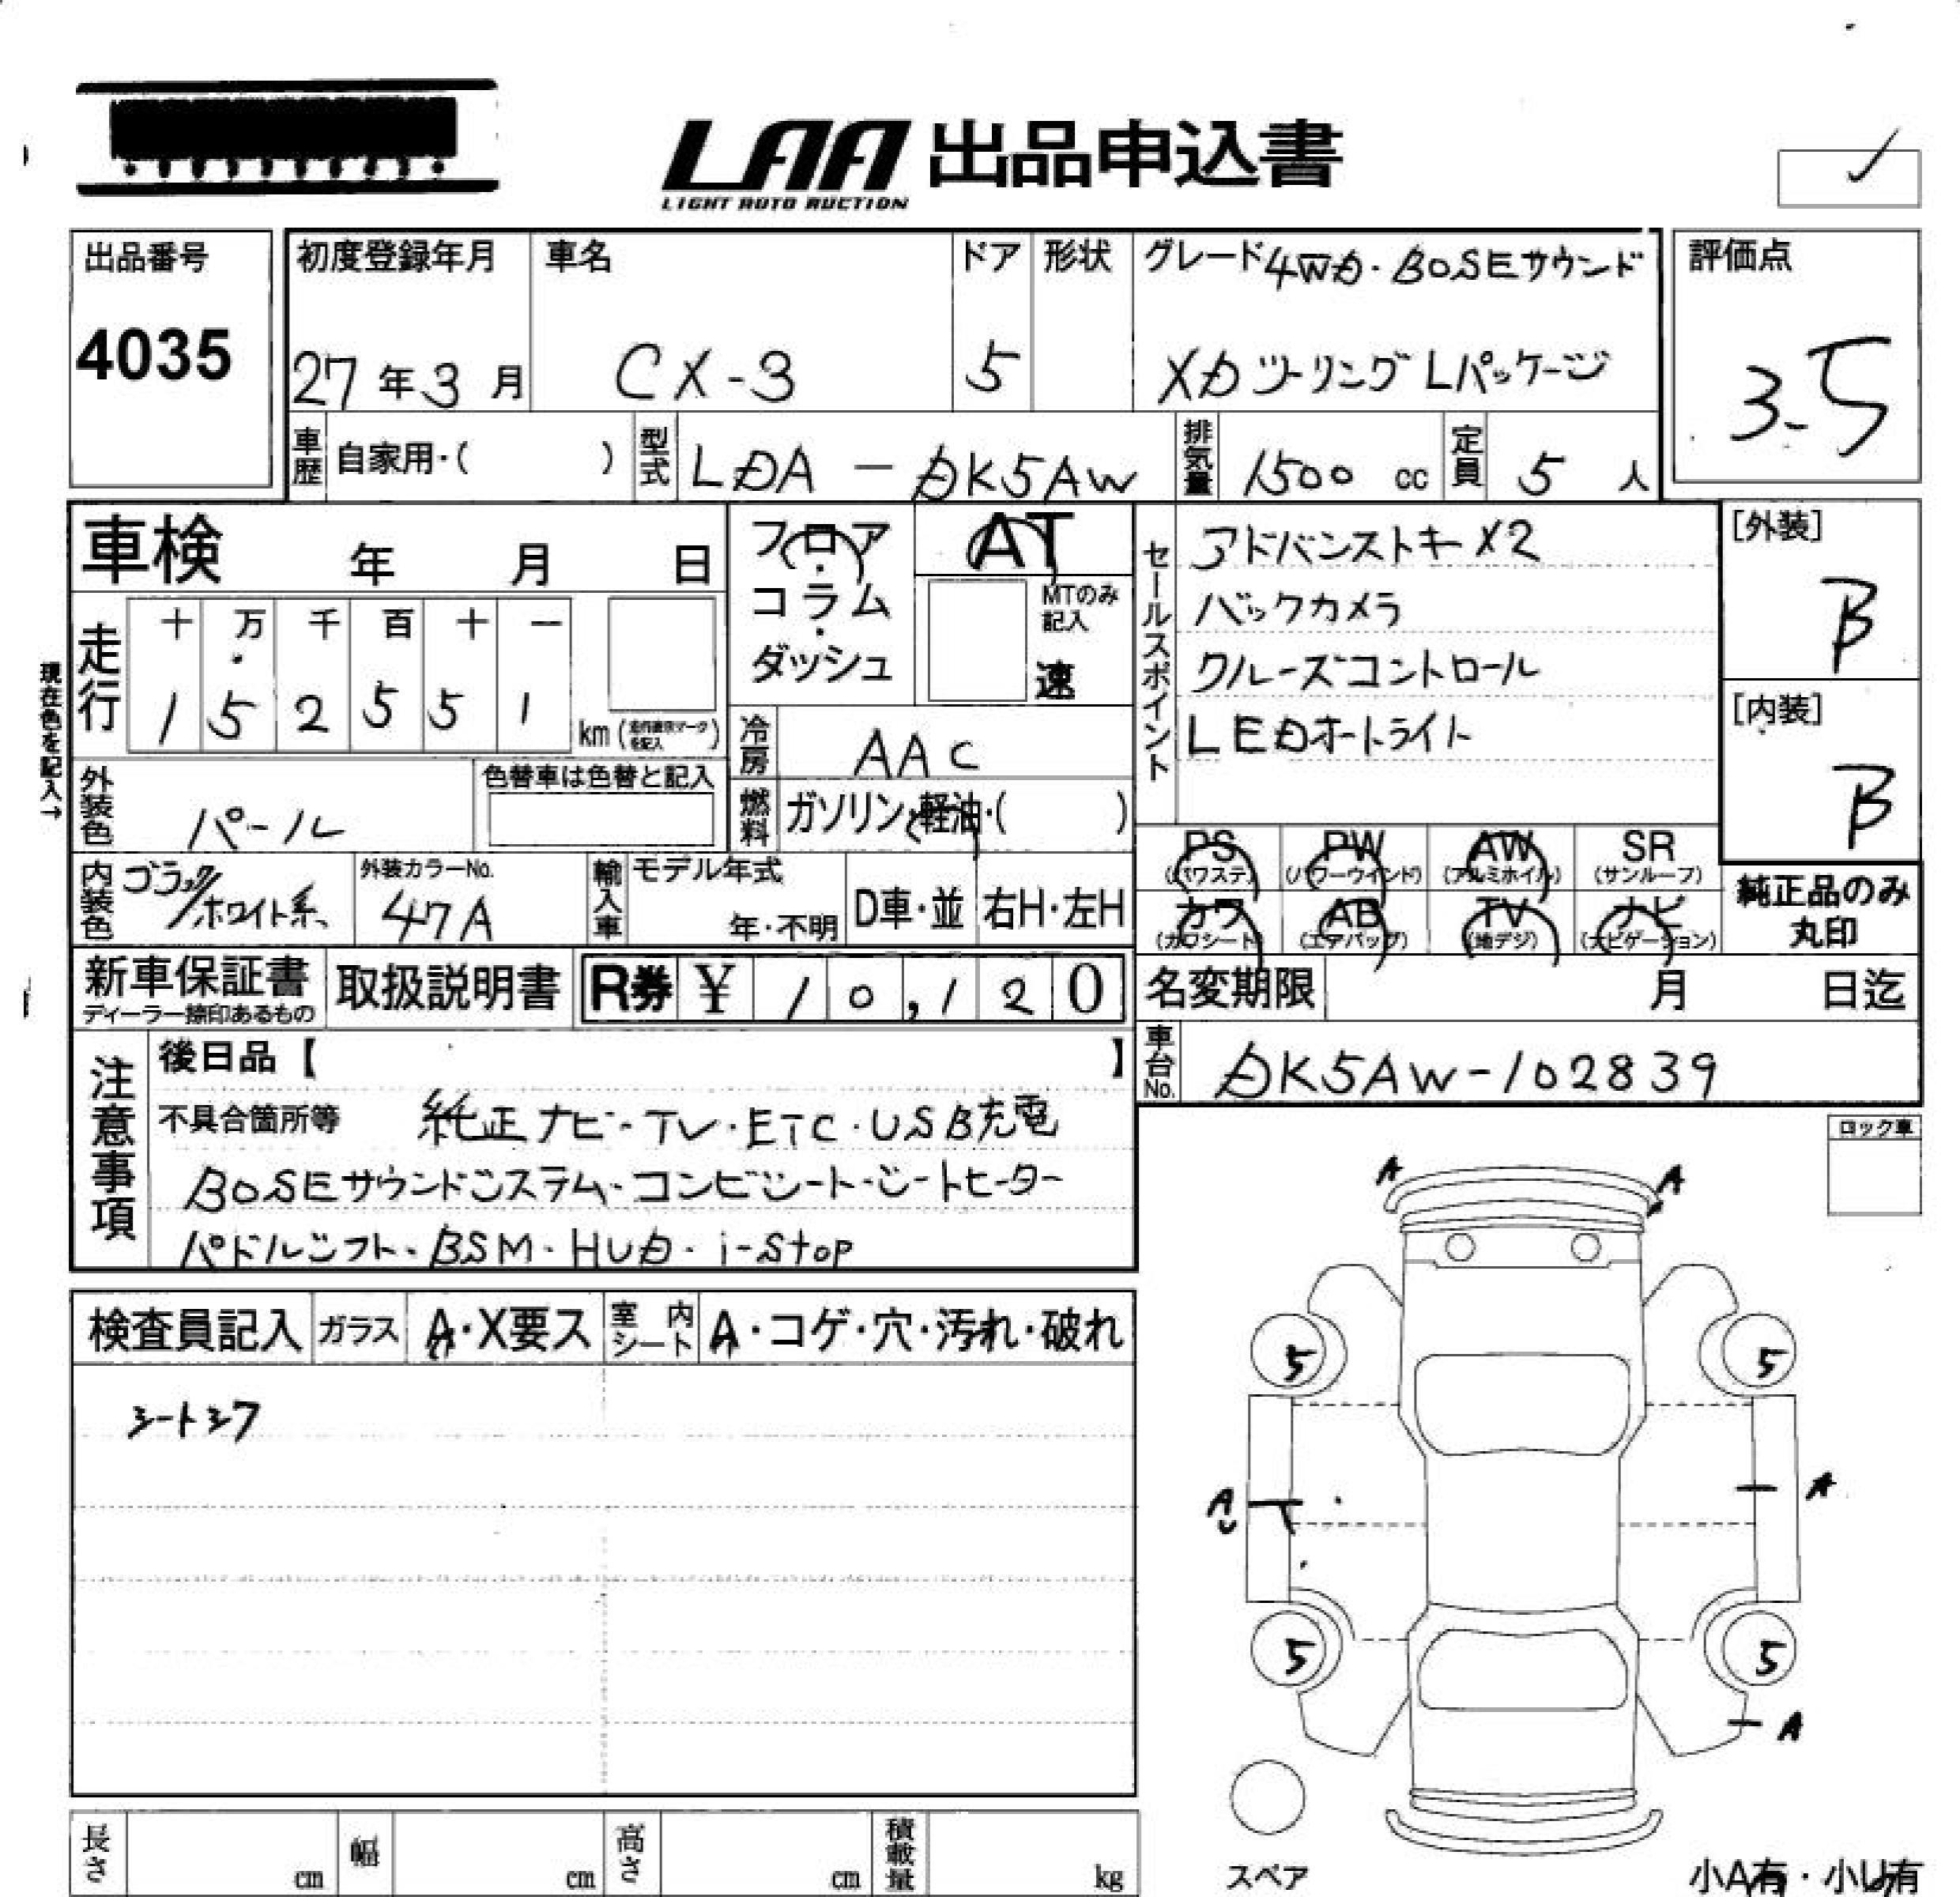 LAA 出品申込書
LIGHT AUTO AUCTION
出品番号
4035
初度登録年月
27年3月
車名
CX-3
ドア
5
形状
グレード 4WD・BOSEサウンド
XDツーリングLパッケージ
評価点
3.5
車歴 自家用・( )
型式 LDA-DK5AW
排気量 1500 cc
定員 5 人
車検 年 月 日
フロア・コラム・ダッシュ
AT
MTのみ記入
速
セールスポイント
アドバンストキーX2
バックカメラ
クルーズコントロール
LEDオートライト
[外装]
B
[内装]
B
現在色を記入→
走行
十 万 千 百 十 一
1 5 2 5 5 1
km
冷房 AAC
燃料 ガソリン・軽油・( )
外装色 パール
色替車は色替と記入
内装色 ブラック/ホワイト系
外装カラーNo.
47A
輸入車 モデル年式
年・不明
D車・並
右H・左H
PS
(パワステ)
PW
(パワーウインド)
AW
(アルミホイル)
SR
(サンルーフ)
カワ
(カワシート)
AB
(エアバッグ)
TV
(地デジ)
ナビ
(ナビゲーション)
純正品のみ
丸印
新車保証書
ディーラー捺印あるもの
取扱説明書
R券 ¥ 10,120
名変期限 月 日迄
車台No. DK5AW-102839
注意事項
後日品【 】
不具合箇所等 純正ナビ・TV・ETC・USB充電
BOSEサウンドシステム・コンビシート・シートヒーター
パドルシフト・BSM・HUD・i-stop
ロック車
検査員記入
ガラス A・X要ス
室内シート A・コゲ・穴・汚れ・破れ
シートシワ
A A
5 5
A A
U
5 5
A
スペア
小A有・小U有
長さ cm
幅 cm
高さ cm
積載量 kg